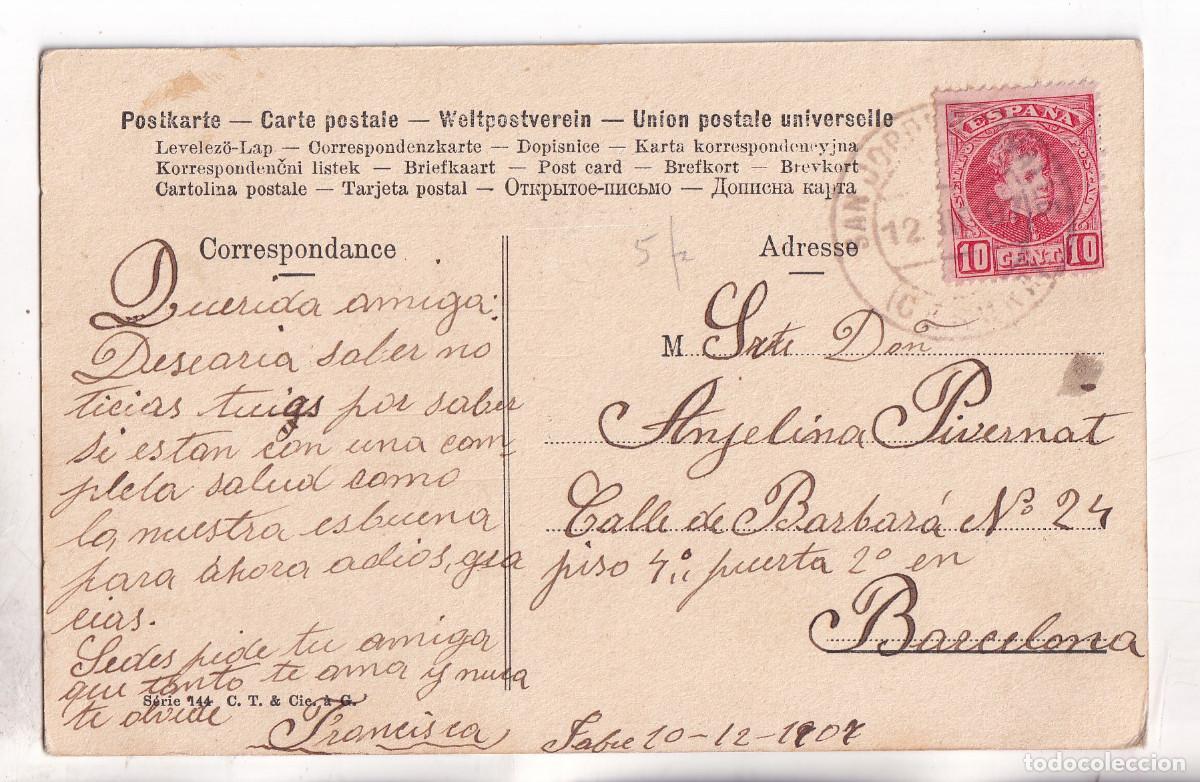 Postkarte — Carte postale — Weltpostverein — Union postale universelle
Levelező-Lap — Correspondenzkarte — Dopisnice — Karta korrespondencyjna
Korrespondenčni listek — Briefkaart — Post card — Brefkort — Brevkort
Cartolina postale — Tarjeta postal — Открытое-письмо — Дописна карта
ESPAÑA
10 CENT 10
12
5
Correspondance
Querida amiga:
Desearia saber no
ticias tuigs por saber
si estan con una com-
pleta salud como
la nuestra esbuena
para áhora adios, gra
cias.
Sedes pide tu amiga
que tanto te ama y nuca
te olvide
Francisca
Série 144 C. T. & Cie. à G.
Adresse
M Srte Don
Anjelina Pivernat
Calle de Barbará Nº 24
piso 4º puerta 2º en
Barcelona
10-12-1907
todocoleccion